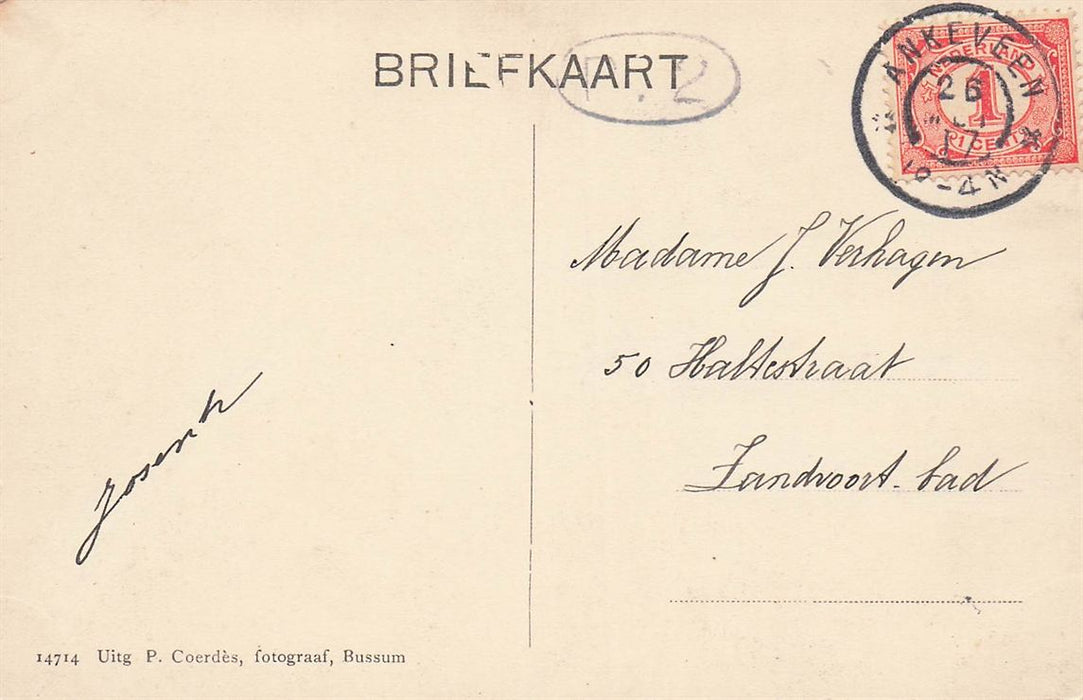 BRIEFKAART
ANKEVEEN
NEDERLAND
26
17
1
1 CENT
-4 N
Madame J. Verhagen
50 Haltestraat
Zandvoort-bad
14714 Uitg P. Coerdès, fotograaf, Bussum